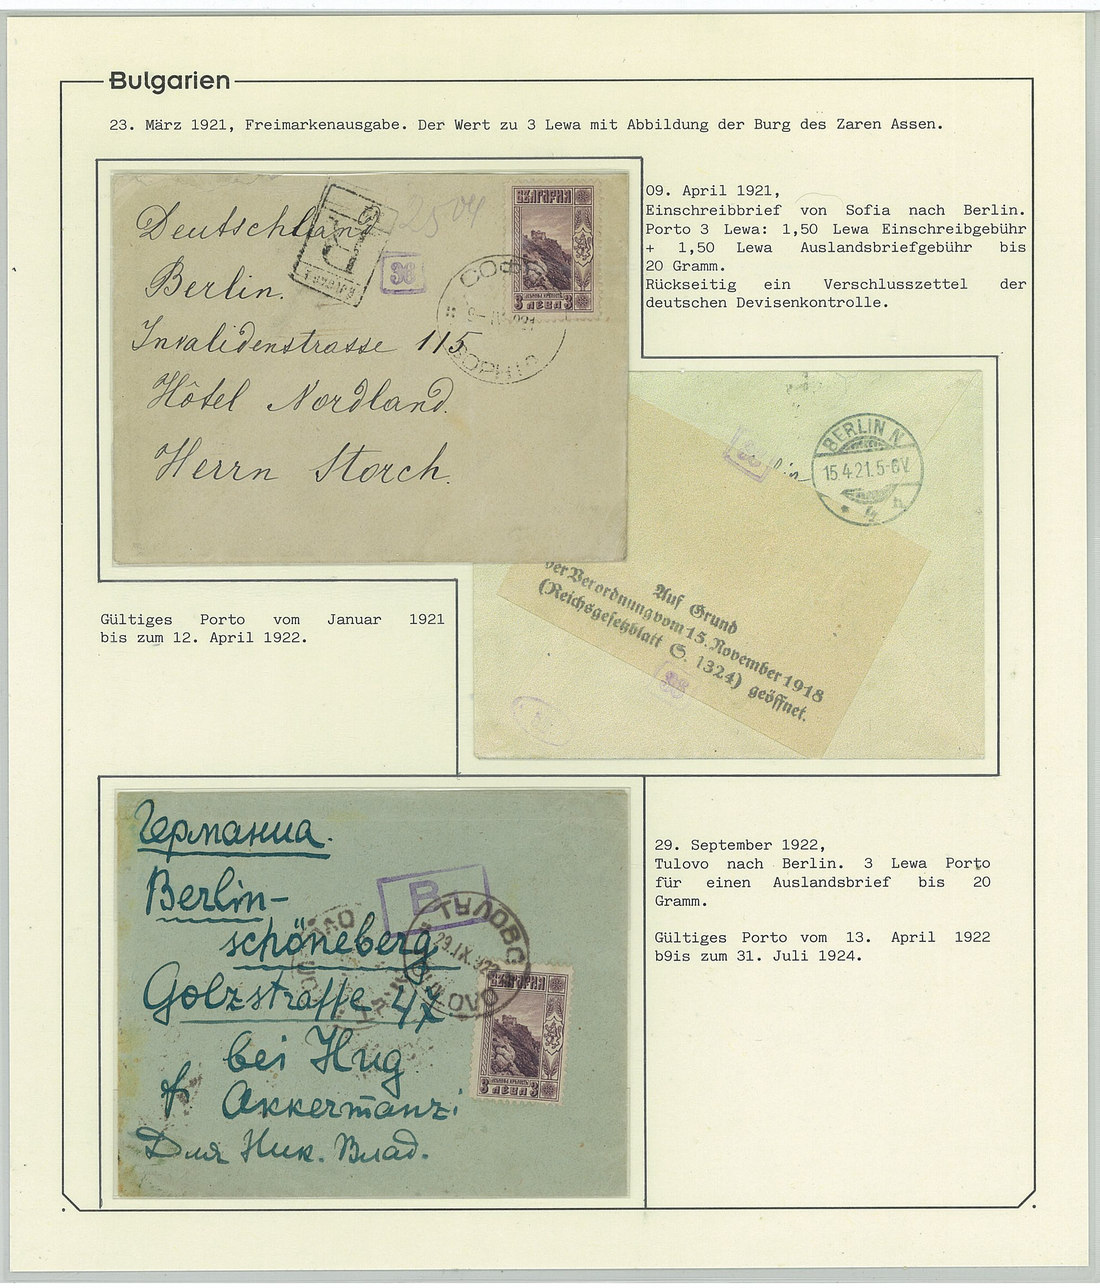 Bulgarien
23. März 1921, Freimarkenausgabe. Der Wert zu 3 Lewa mit Abbildung der Burg des Zaren Assen.
09. April 1921,
Einschreibbrief von Sofia nach Berlin.
Porto 3 Lewa: 1,50 Lewa Einschreibgebühr
+ 1,50 Lewa Auslandsbriefgebühr bis
20 Gramm.
Rückseitig ein Verschlusszettel der
deutschen Devisenkontrolle.
Deutschland
Berlin.
Invalidenstrasse 115
Hôtel Nordland.
Herrn Storch.
R
38
БЪЛГАРИЯ
3 ЛЕВА 3
BERLIN N
15.4.21.5-6V.
* 4 n
38
Auf Grund
der Verordnung vom 15. November 1918
(Reichsgesetzblatt S. 1324) geöffnet.
38
Gültiges Porto vom Januar 1921
bis zum 12. April 1922.
Германиа.
Berlin-
schöneberg
Golzstraffe 47
bei Hug
Аккетапzi
Для Ник. Влад.
B
29.IX.922
БЪЛГАРИЯ
3 ЛЕВА 3
29. September 1922,
Tulovo nach Berlin. 3 Lewa Porto
für einen Auslandsbrief bis 20
Gramm.
Gültiges Porto vom 13. April 1922
b9is zum 31. Juli 1924.